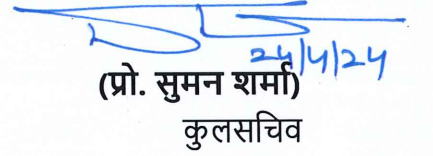 24/4/24
(प्रो. सुमन शर्मा)
कुलसचिव